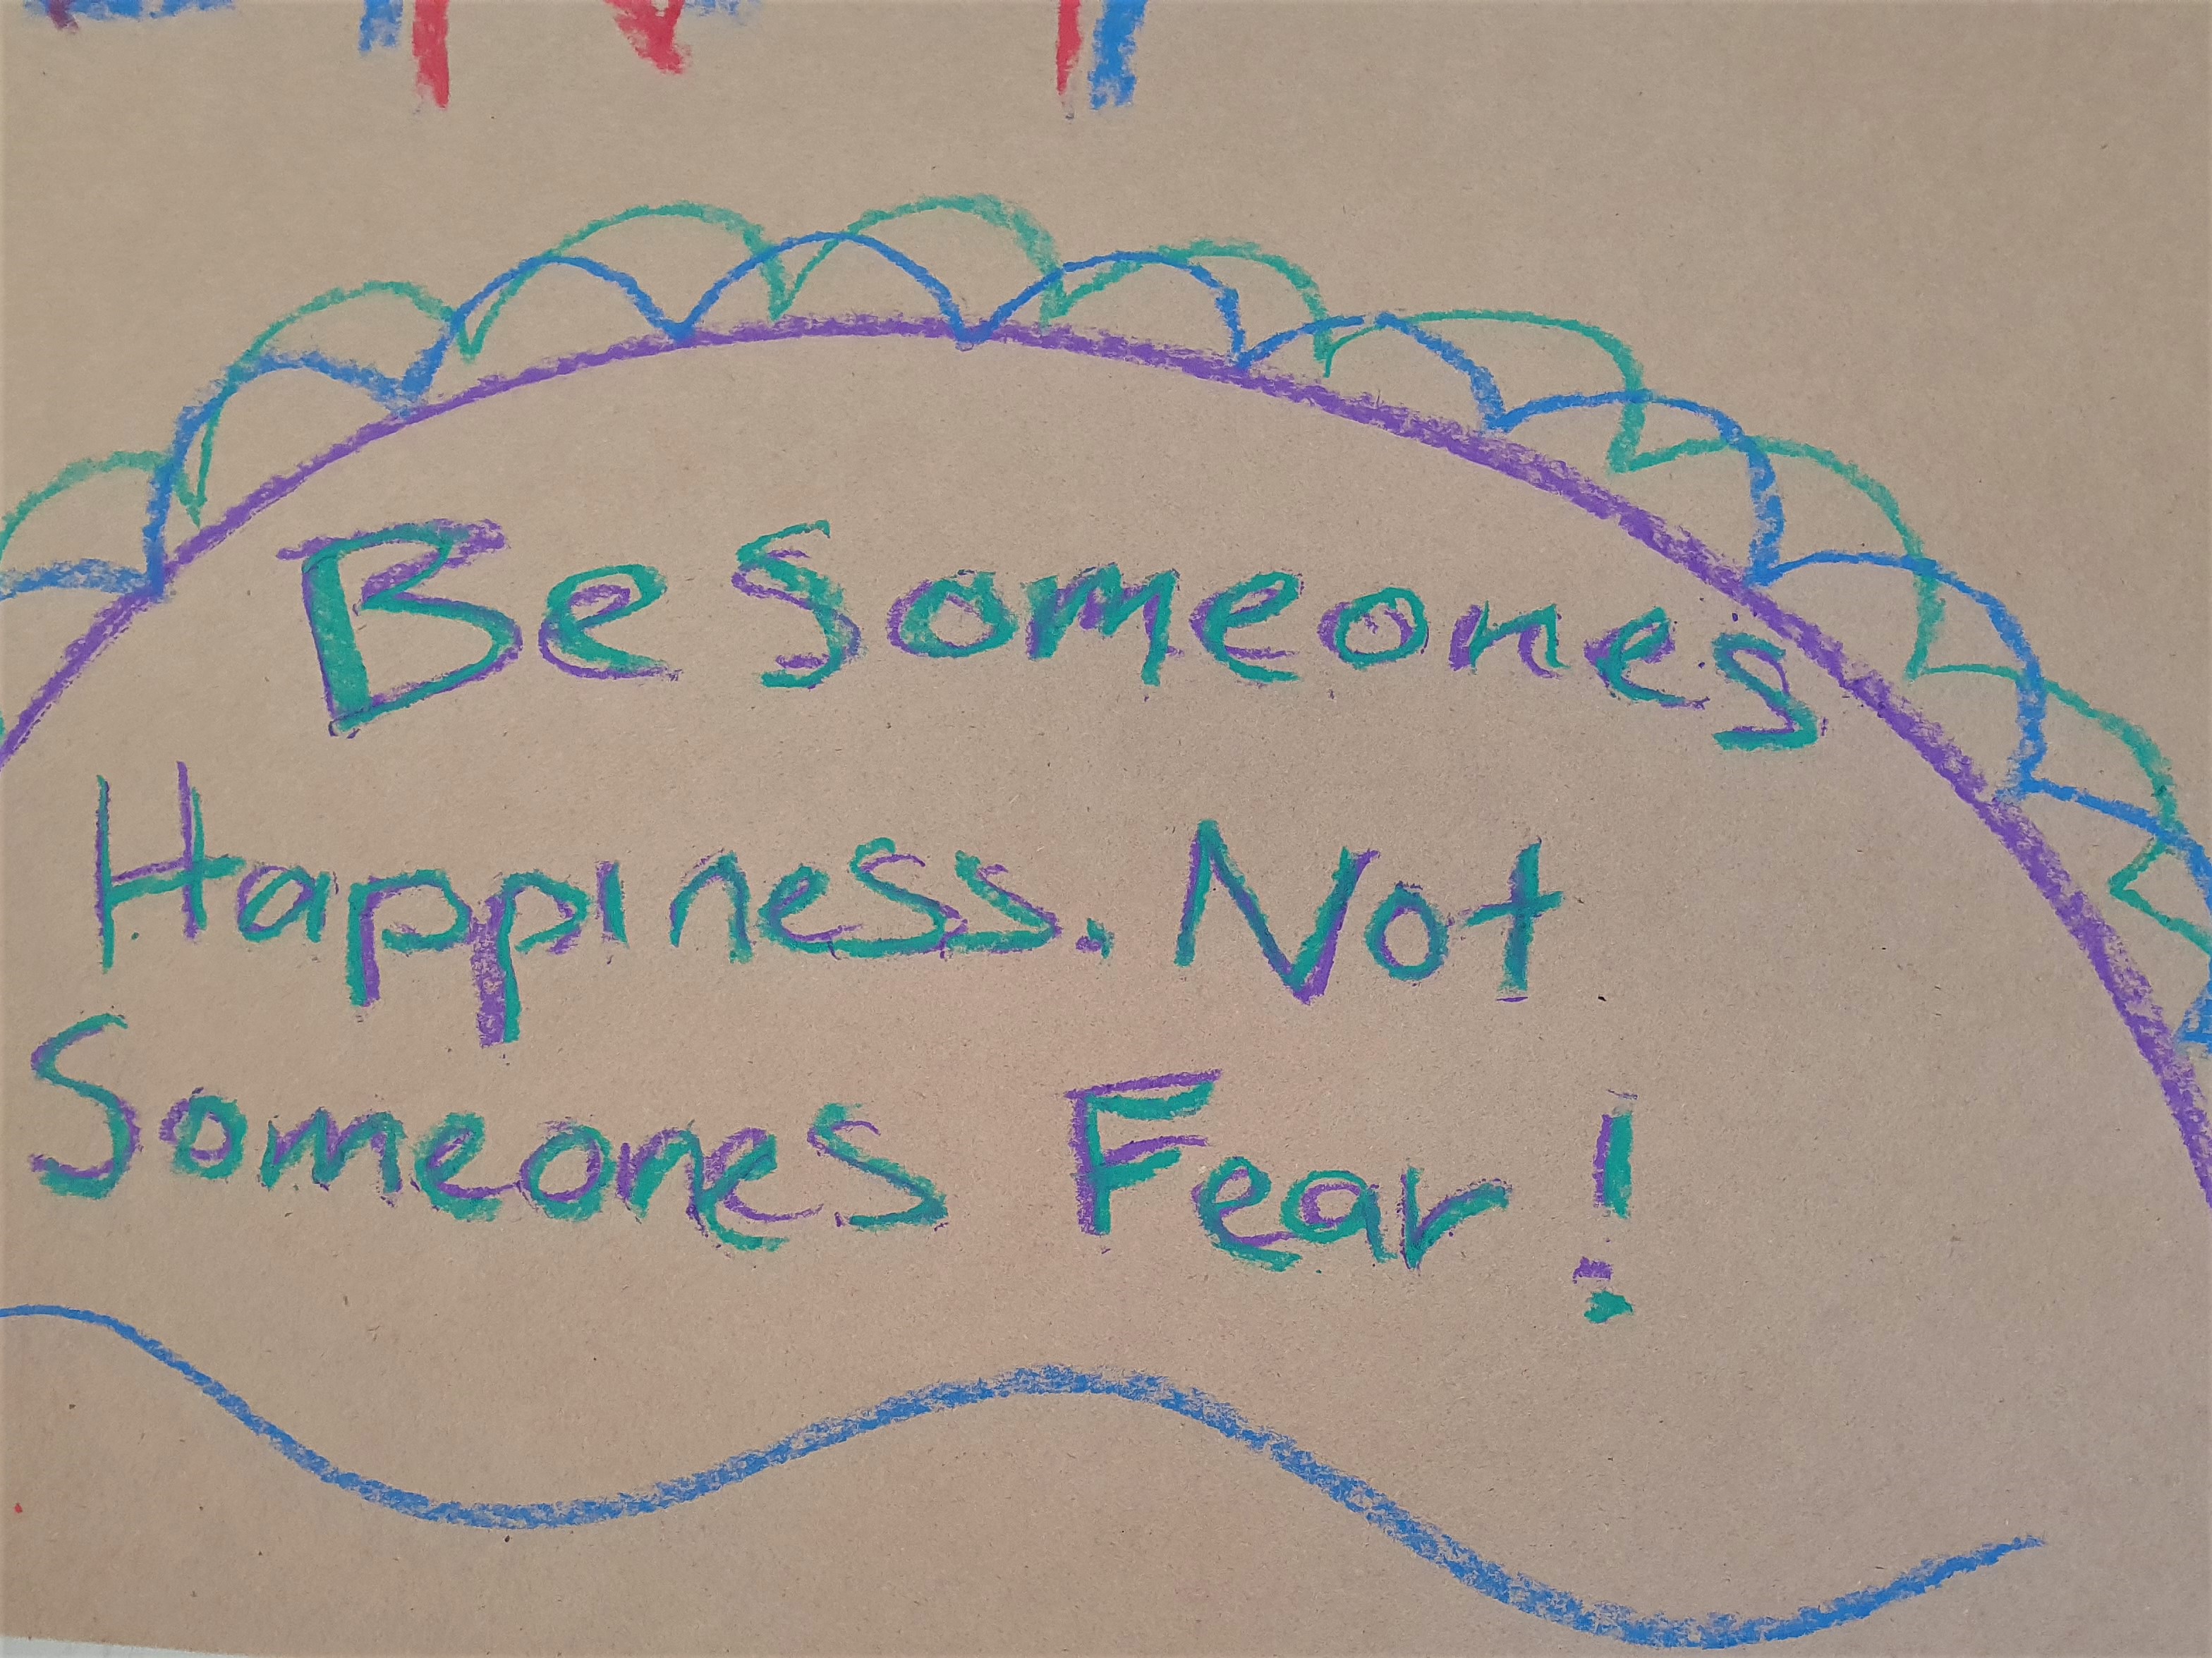 Be someones
Happiness. Not
Someones Fear!